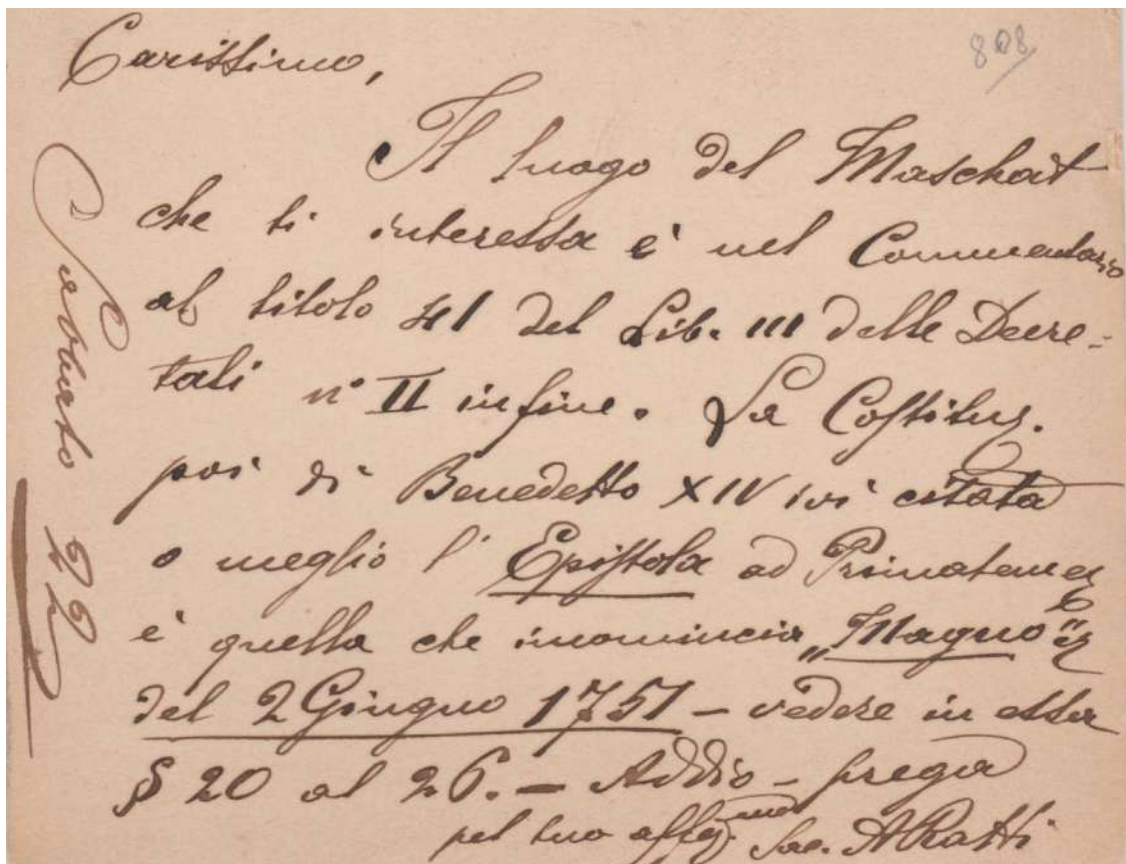 808
Carissimo,
Il luogo del Maschat
che ti interessa è nel Commentario
al titolo 41 del Lib. III delle Decre-
tali n° II in fine. La Costituz.
poi di Benedetto XIV ivi citata
o meglio l'Epistola ad Primatem
è quella che incomincia „Magno"
del 2 Giugno 1751 – vedere in essa
§ 20 al 26. – Addio – prega
pel tuo affez.mo Sac. A Ratti
Sabato 22